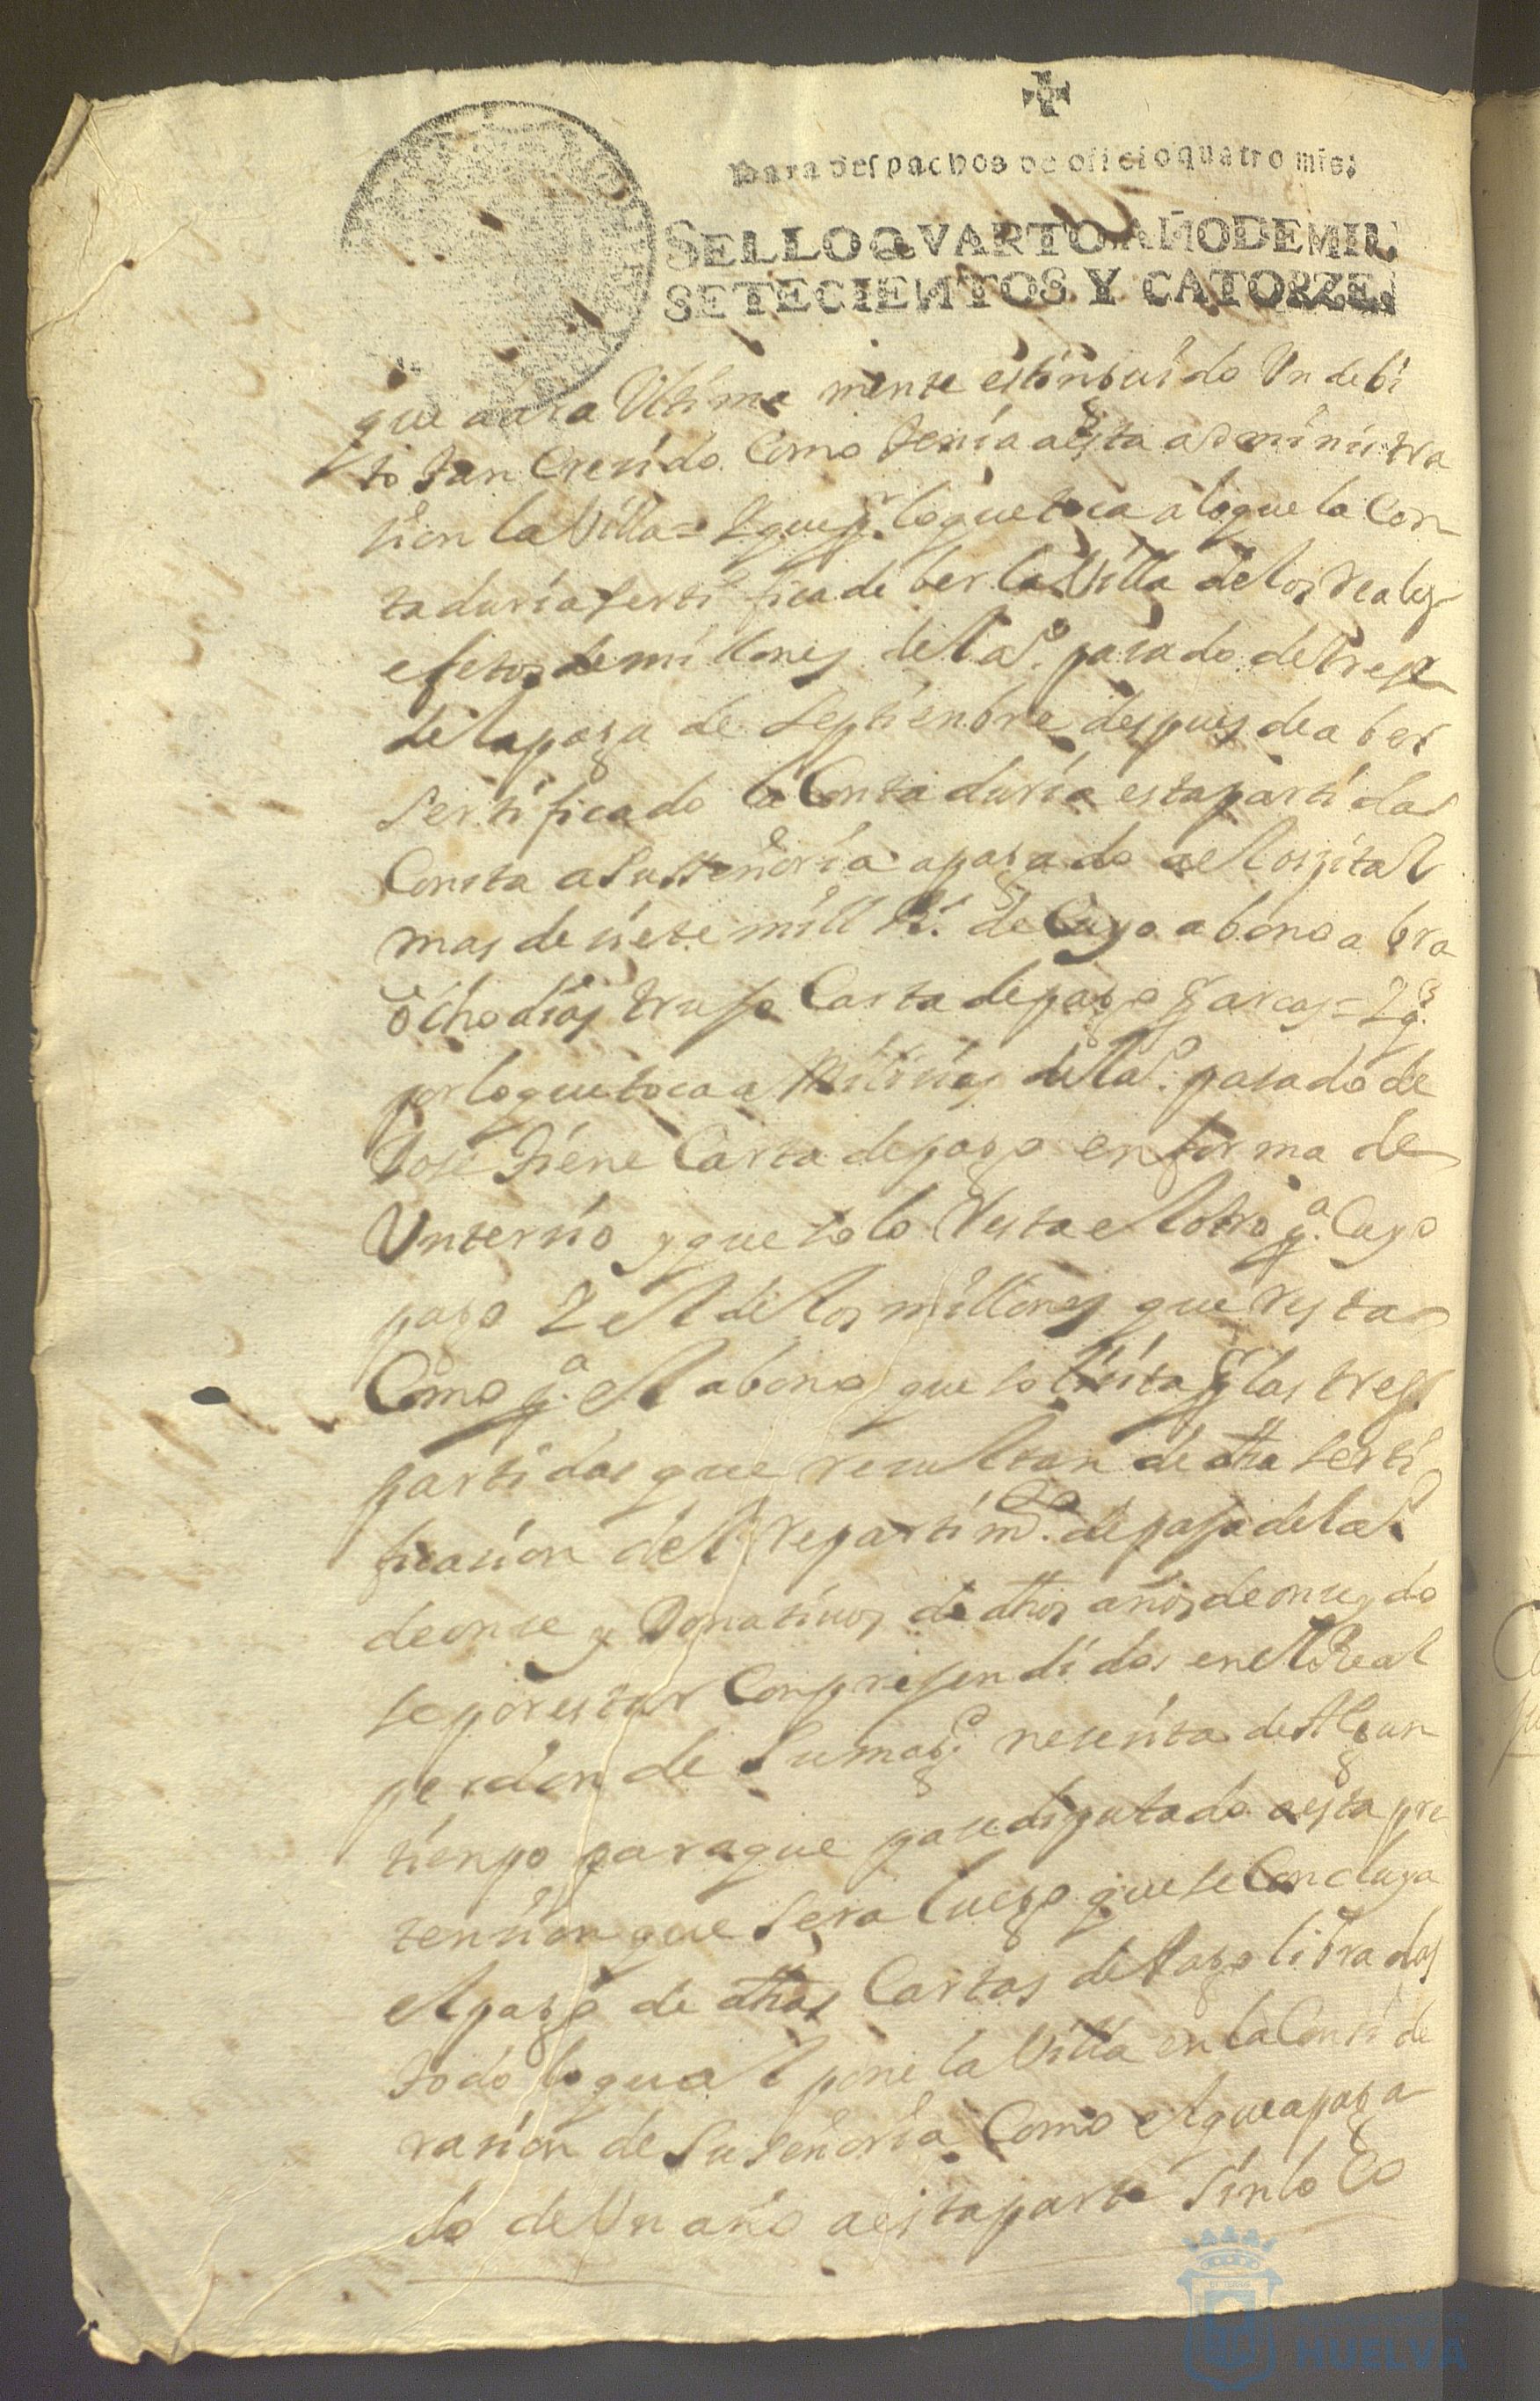 Para despachos de oficio quatro mrs.
SELLO QVARTO AÑO DE MIL
SETECIENTOS Y CATORZE.
que aora Ultima mente estinguido Un debi
to tan Cresido Como tenia a esta administra
sion la Villa = Y que pr. lo que toca a lo que la Con
taduria serti fica deber la Villa de los reales
efetos de millones del a.º pasado de trese
de la paga de Septienbre despues de a ber
sertificado la Contaduria esta partidas
Consta a Su Señoria a pagado a el ospital
mas de siete mill Rs. de Cuyo abono abra
ocho dias trujo Carta de pago pr arcas = Y q.e
por lo que toca a Milisias del a.º pasado de
Dose tiene Carta de pago en forma de
Un tersio y que solo resta el otro p.a Cuyo
pago Y el de los millones que resta
Como p.a el abono que solisita pr las tres
partidas que resultan de dha serti
ficasion del repartim.to de paja del a.º
de onse y Donativos de dhos años de onse y do
se por estar Conprejendidos en el Real
perdon de Su mag.d nesesita de Algun
tienpo para que pase diputado a esta pre
tension que sera luego que se Concluya
el pago de dhas Cartas de Pago libradas
todo lo qual pone la Villa en la Consi de
rasion de Su señoria Como el que a paga
do de Un año a esta parte sinlo Co
HUELVA